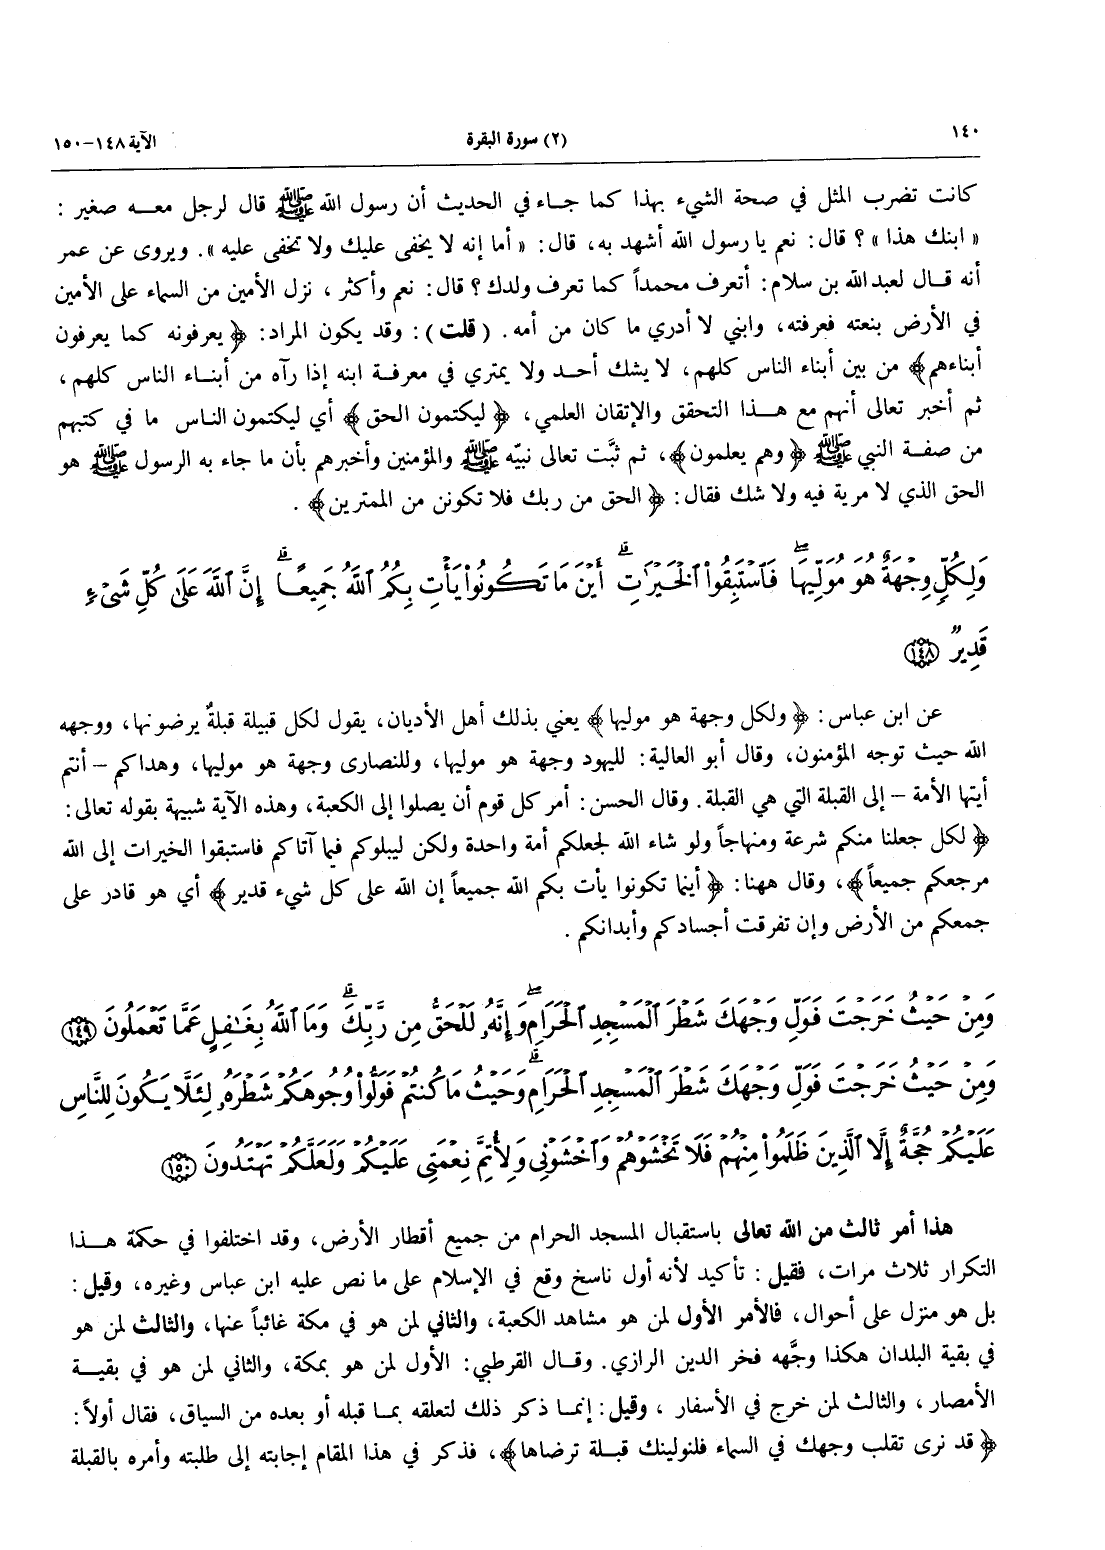 ١٤٠
(٢) سورة البقرة
الآية ١٤٨-١٥٠
كانت تضرب المثل في صحة الشيء بهذا كما جاء في الحديث أن رسول الله ﷺ قال لرجل معه صغير :
« ابنك هذا » ؟ قال: نعم يا رسول الله أشهد به، قال: « أما إنه لا يخفى عليك ولا تخفى عليه ». ويروى عن عمر
أنه قال لعبد الله بن سلام: أتعرف محمداً كما تعرف ولدك ؟ قال: نعم وأكثر ، نزل الأمين من السماء على الأمين
في الأرض بنعته فعرفته، وابني لا أدري ما كان من أمه. ( قلت ) : وقد يكون المراد: ﴿ يعرفونه كما يعرفون
أبناءهم﴾ من بين أبناء الناس كلهم، لا يشك أحد ولا يمتري في معرفة ابنه إذا رآه من أبناء الناس كلهم،
ثم أخبر تعالى أنهم مع هذا التحقق والإتقان العلمي، ﴿ ليكتمون الحق ﴾ أي ليكتمون الناس ما في كتبهم
من صفة النبي ﷺ ﴿ وهم يعلمون﴾، ثم ثبَّت تعالى نبيّه ﷺ والمؤمنين وأخبرهم بأن ما جاء به الرسول ﷺ هو
الحق الذي لا مرية فيه ولا شك فقال: ﴿ الحق من ربك فلا تكونن من الممترين﴾ .
وَلِكُلٍّ وِجْهَةٌ هُوَ مُوَلِّيهَا ۖ فَٱسْتَبِقُوا۟ ٱلْخَيْرَٰتِ ۚ أَيْنَ مَا تَكُونُوا۟ يَأْتِ بِكُمُ ٱللَّهُ جَمِيعًا ۚ إِنَّ ٱللَّهَ عَلَىٰ كُلِّ شَىْءٍ
قَدِيرٌ ١٤٨
عن ابن عباس: ﴿ ولكل وجهة هو موليها﴾ يعني بذلك أهل الأديان، يقول لكل قبيلة قبلةٌ يرضونها، ووجهه
الله حيث توجه المؤمنون، وقال أبو العالية: لليهود وجهة هو موليها، وللنصارى وجهة هو موليها، وهداكم – أنتم
أيتها الأمة – إلى القبلة التي هي القبلة. وقال الحسن: أمر كل قوم أن يصلوا إلى الكعبة، وهذه الآية شبيهة بقوله تعالى:
﴿ لكل جعلنا منكم شرعة ومنهاجاً ولو شاء الله لجعلكم أمة واحدة ولكن ليبلوكم فيما آتاكم فاستبقوا الخيرات إلى الله
مرجعكم جميعاً﴾، وقال ههنا: ﴿ أينما تكونوا يأت بكم الله جميعاً إن الله على كل شيء قدير ﴾ أي هو قادر على
جمعكم من الأرض وإن تفرقت أجسادكم وأبدانكم .
وَمِنْ حَيْثُ خَرَجْتَ فَوَلِّ وَجْهَكَ شَطْرَ ٱلْمَسْجِدِ ٱلْحَرَامِ ۖ وَإِنَّهُۥ لَلْحَقُّ مِن رَّبِّكَ ۗ وَمَا ٱللَّهُ بِغَٰفِلٍ عَمَّا تَعْمَلُونَ ١٤٩
وَمِنْ حَيْثُ خَرَجْتَ فَوَلِّ وَجْهَكَ شَطْرَ ٱلْمَسْجِدِ ٱلْحَرَامِ ۚ وَحَيْثُ مَا كُنتُمْ فَوَلُّوا۟ وُجُوهَكُمْ شَطْرَهُۥ لِئَلَّا يَكُونَ لِلنَّاسِ
عَلَيْكُمْ حُجَّةٌ إِلَّا ٱلَّذِينَ ظَلَمُوا۟ مِنْهُمْ فَلَا تَخْشَوْهُمْ وَٱخْشَوْنِى وَلِأُتِمَّ نِعْمَتِى عَلَيْكُمْ وَلَعَلَّكُمْ تَهْتَدُونَ ١٥٠
هذا أمر ثالث من الله تعالى باستقبال المسجد الحرام من جميع أقطار الأرض، وقد اختلفوا في حكمة هذا
التكرار ثلاث مرات، فقيل : تأكيد لأنه أول ناسخ وقع في الإسلام على ما نص عليه ابن عباس وغيره، وقيل :
بل هو منزل على أحوال، فالأمر الأول لمن هو مشاهد الكعبة، والثاني لمن هو في مكة غائباً عنها، والثالث لمن هو
في بقية البلدان هكذا وجَّهه فخر الدين الرازي. وقال القرطبي: الأول لمن هو بمكة، والثاني لمن هو في بقية
الأمصار ، والثالث لمن خرج في الأسفار ، وقيل : إنما ذكر ذلك لتعلقه بما قبله أو بعده من السياق، فقال أولاً:
﴿ قد نرى تقلب وجهك في السماء فلنولينك قبلة ترضاها﴾، فذكر في هذا المقام إجابته إلى طلبته وأمره بالقبلة